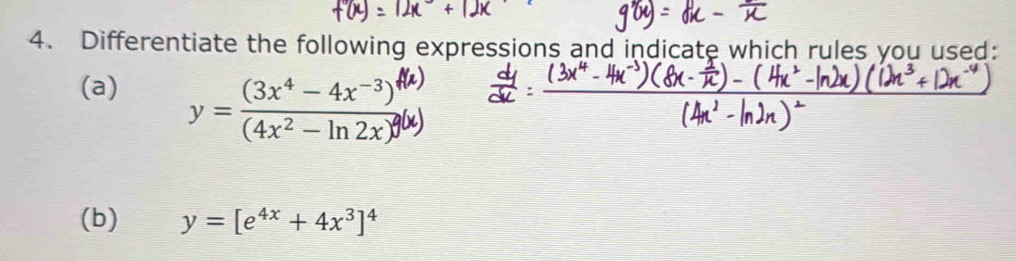 f'(x) = 12x + 12x
g'(x) = 8x - /x
4. Differentiate the following expressions and indicate which rules you used:
(a) y = (3x⁴ − 4x⁻³) f(x) / (4x² − ln 2x) g(x) dy/dx = (3x⁴ - 4x⁻³)(8x - 2/x) - (4x² - ln2x)(12x³ + 12x⁻⁴) / (4x² - ln2x)²
(b) y = [e⁴ˣ + 4x³]⁴